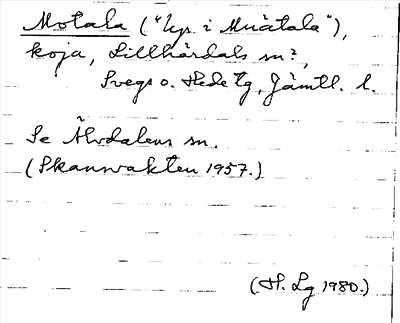 Motala ("Up i Muåtala"),
koja, Lillhärdals sn?,
Svegs o. Hede tg, Jämtl. l.
Se Älvdalens sn.
(Skanvakten 1957.)
(H. Lg 1980.)